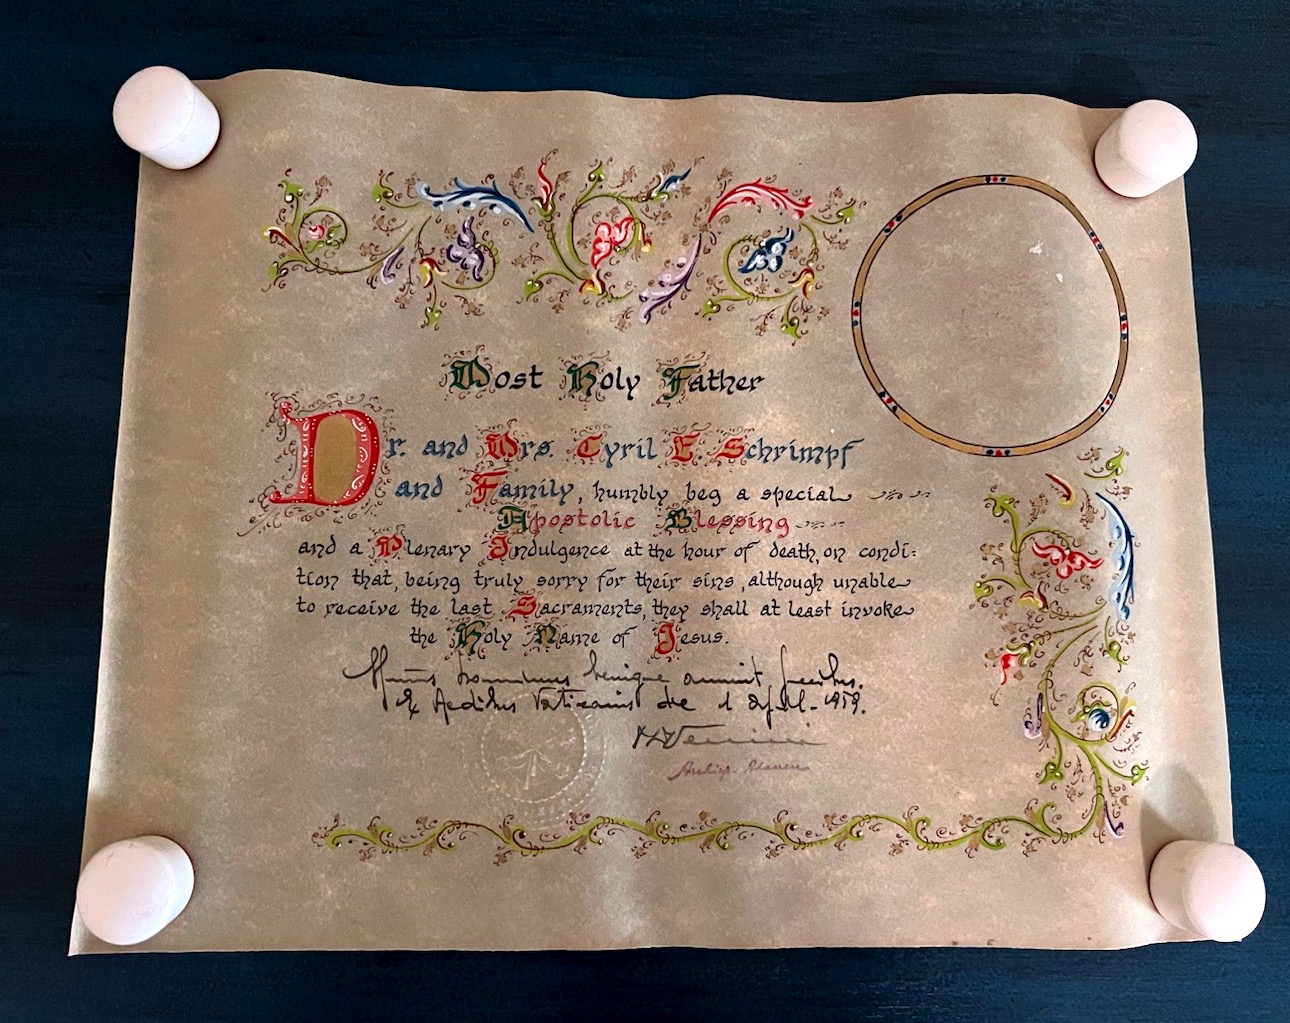 Most Holy Father
Dr. and Mrs. Cyril E. Schrimpf
and Family, humbly beg a special
Apostolic Blessing
and a Plenary Indulgence at the hour of death, on condi:
tion that, being truly sorry for their sins, although unable
to receive the last Sacraments, they shall at least invoke
the Holy Name of Jesus.
benigne annuit precibus.
Ex Aedibus Vaticanis die 1 1959.